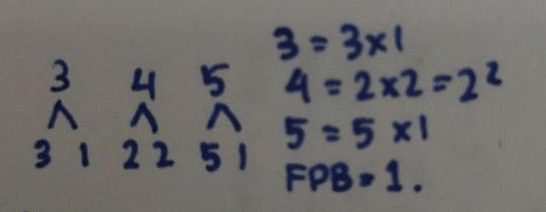 3 4 5
3 1 2 2 5 1
3 = 3x1
4 = 2x2 = 2²
5 = 5 x1
FPB = 1.